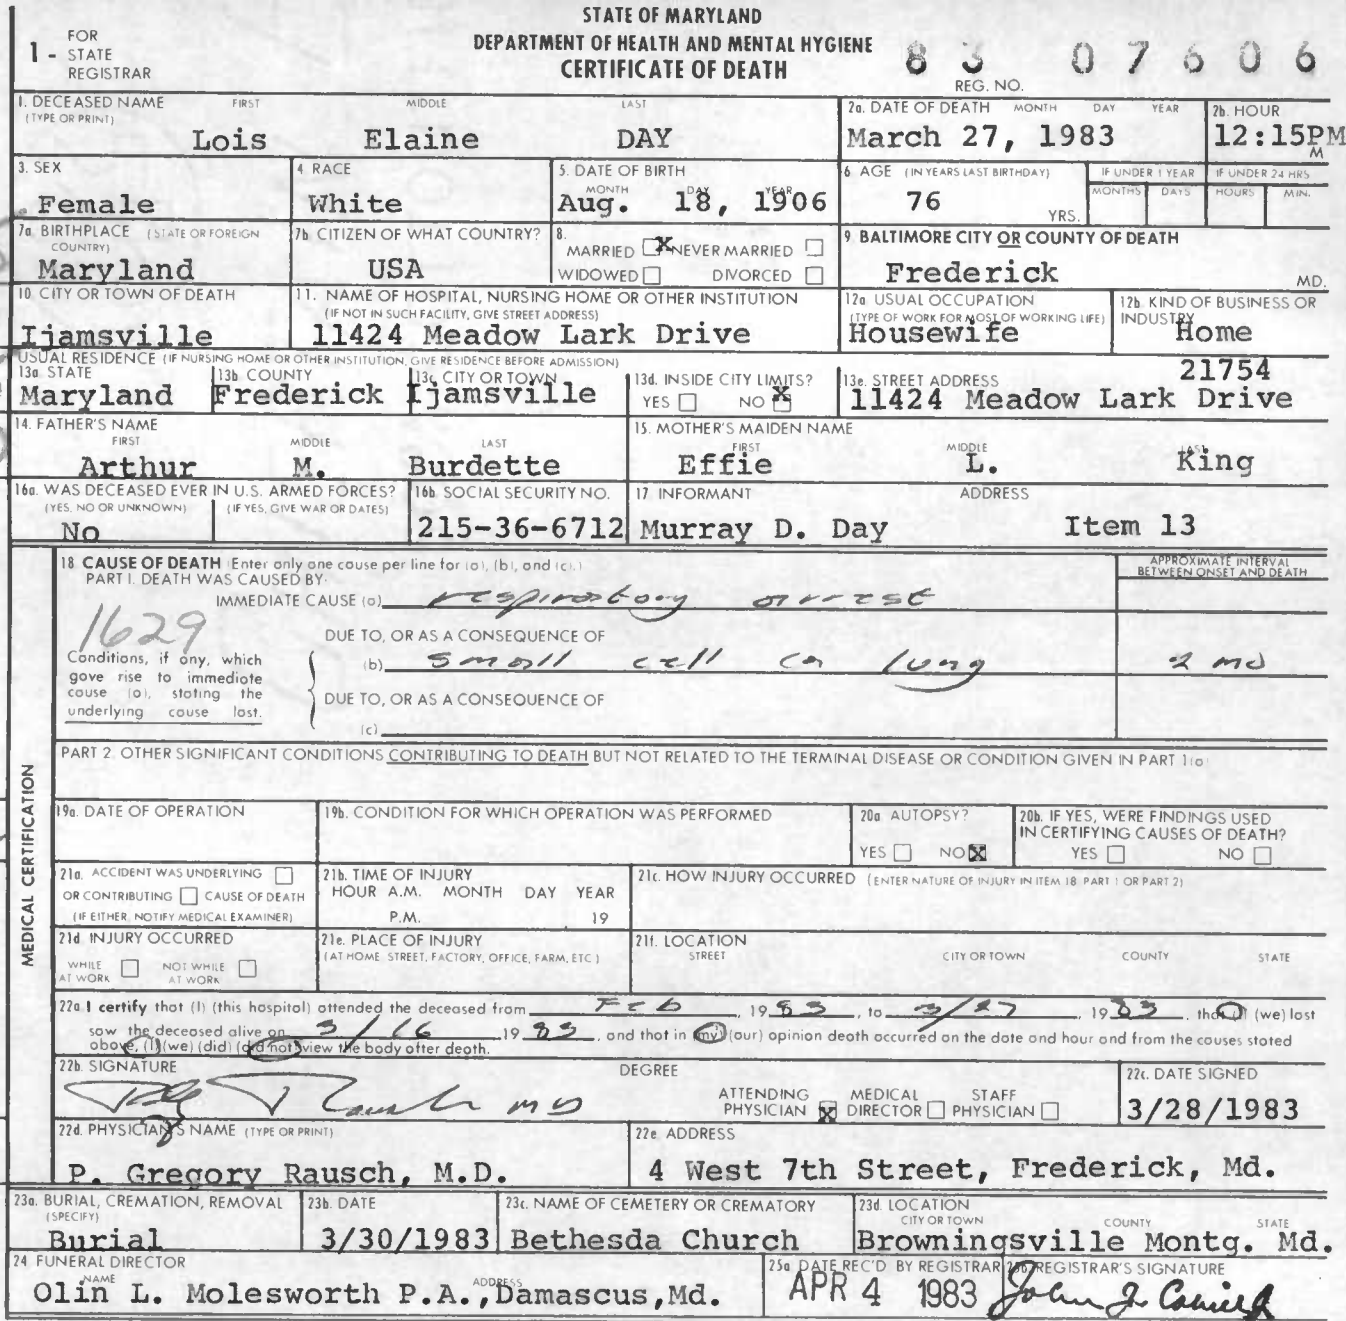 STATE OF MARYLAND
DEPARTMENT OF HEALTH AND MENTAL HYGIENE
CERTIFICATE OF DEATH
1 - FOR STATE REGISTRAR
83 07606
REG. NO.
1. DECEASED NAME (TYPE OR PRINT) FIRST MIDDLE LAST
Lois Elaine DAY
2a. DATE OF DEATH MONTH DAY YEAR
March 27, 1983
2b. HOUR
12:15PM
M
3. SEX
Female
4 RACE
White
5. DATE OF BIRTH
MONTH DAY YEAR
Aug. 18, 1906
6 AGE (IN YEARS LAST BIRTHDAY)
76 YRS.
IF UNDER 1 YEAR
MONTHS DAYS
IF UNDER 24 HRS
HOURS MIN.
7a BIRTHPLACE (STATE OR FOREIGN COUNTRY)
Maryland
7b CITIZEN OF WHAT COUNTRY?
USA
8.
MARRIED X NEVER MARRIED
WIDOWED DIVORCED
9 BALTIMORE CITY OR COUNTY OF DEATH
Frederick MD.
10 CITY OR TOWN OF DEATH
Ijamsville
11. NAME OF HOSPITAL, NURSING HOME OR OTHER INSTITUTION
(IF NOT IN SUCH FACILITY, GIVE STREET ADDRESS)
11424 Meadow Lark Drive
12a USUAL OCCUPATION
(TYPE OF WORK FOR MOST OF WORKING LIFE)
Housewife
12b KIND OF BUSINESS OR INDUSTRY
Home
USUAL RESIDENCE (IF NURSING HOME OR OTHER INSTITUTION, GIVE RESIDENCE BEFORE ADMISSION)
13a STATE
Maryland
13b COUNTY
Frederick
13c CITY OR TOWN
Ijamsville
13d. INSIDE CITY LIMITS?
YES NO X
13e. STREET ADDRESS
21754
11424 Meadow Lark Drive
14. FATHER'S NAME
FIRST MIDDLE LAST
Arthur M. Burdette
15. MOTHER'S MAIDEN NAME
FIRST MIDDLE LAST
Effie L. King
16a. WAS DECEASED EVER IN U.S. ARMED FORCES?
(YES, NO OR UNKNOWN) (IF YES, GIVE WAR OR DATES)
No
16b SOCIAL SECURITY NO.
215-36-6712
17 INFORMANT ADDRESS
Murray D. Day Item 13
MEDICAL CERTIFICATION
18 CAUSE OF DEATH (Enter only one cause per line for (a), (b), and (c).)
PART I. DEATH WAS CAUSED BY:
APPROXIMATE INTERVAL BETWEEN ONSET AND DEATH
IMMEDIATE CAUSE (a) respiratory arrest
1629
Conditions, if any, which gave rise to immediate cause (a), stating the underlying cause last.
DUE TO, OR AS A CONSEQUENCE OF
(b) small cell ca lung 2 mo
DUE TO, OR AS A CONSEQUENCE OF
(c)
PART 2. OTHER SIGNIFICANT CONDITIONS CONTRIBUTING TO DEATH BUT NOT RELATED TO THE TERMINAL DISEASE OR CONDITION GIVEN IN PART 1(a)
19a. DATE OF OPERATION
19b. CONDITION FOR WHICH OPERATION WAS PERFORMED
20a AUTOPSY?
YES NO X
20b. IF YES, WERE FINDINGS USED IN CERTIFYING CAUSES OF DEATH?
YES NO
21a. ACCIDENT WAS UNDERLYING
OR CONTRIBUTING CAUSE OF DEATH
(IF EITHER, NOTIFY MEDICAL EXAMINER)
21b. TIME OF INJURY
HOUR A.M. MONTH DAY YEAR
P.M. 19
21c. HOW INJURY OCCURRED (ENTER NATURE OF INJURY IN ITEM 18 PART 1 OR PART 2)
21d INJURY OCCURRED
WHILE AT WORK NOT WHILE AT WORK
21e. PLACE OF INJURY
(AT HOME, STREET, FACTORY, OFFICE, FARM, ETC)
21f. LOCATION
STREET CITY OR TOWN COUNTY STATE
22a I certify that (I) (this hospital) attended the deceased from Feb, 1983, to 3/27, 1983, that (I) (we) last
saw the deceased alive on 3/16 1983, and that in (my) (our) opinion death occurred on the date and hour and from the causes stated
above, (I) (we) (did) (did not) view the body after death.
22b. SIGNATURE DEGREE
Rausch MD
ATTENDING PHYSICIAN X MEDICAL DIRECTOR STAFF PHYSICIAN
22c. DATE SIGNED
3/28/1983
22d. PHYSICIAN'S NAME (TYPE OR PRINT)
P. Gregory Rausch, M.D.
22e ADDRESS
4 West 7th Street, Frederick, Md.
23a. BURIAL, CREMATION, REMOVAL (SPECIFY)
Burial
23b. DATE
3/30/1983
23c. NAME OF CEMETERY OR CREMATORY
Bethesda Church
23d. LOCATION
CITY OR TOWN COUNTY STATE
Browningsville Montg. Md.
24 FUNERAL DIRECTOR
NAME ADDRESS
Olin L. Molesworth P.A., Damascus, Md.
25a DATE REC'D BY REGISTRAR
APR 4 1983
25b REGISTRAR'S SIGNATURE
John J.